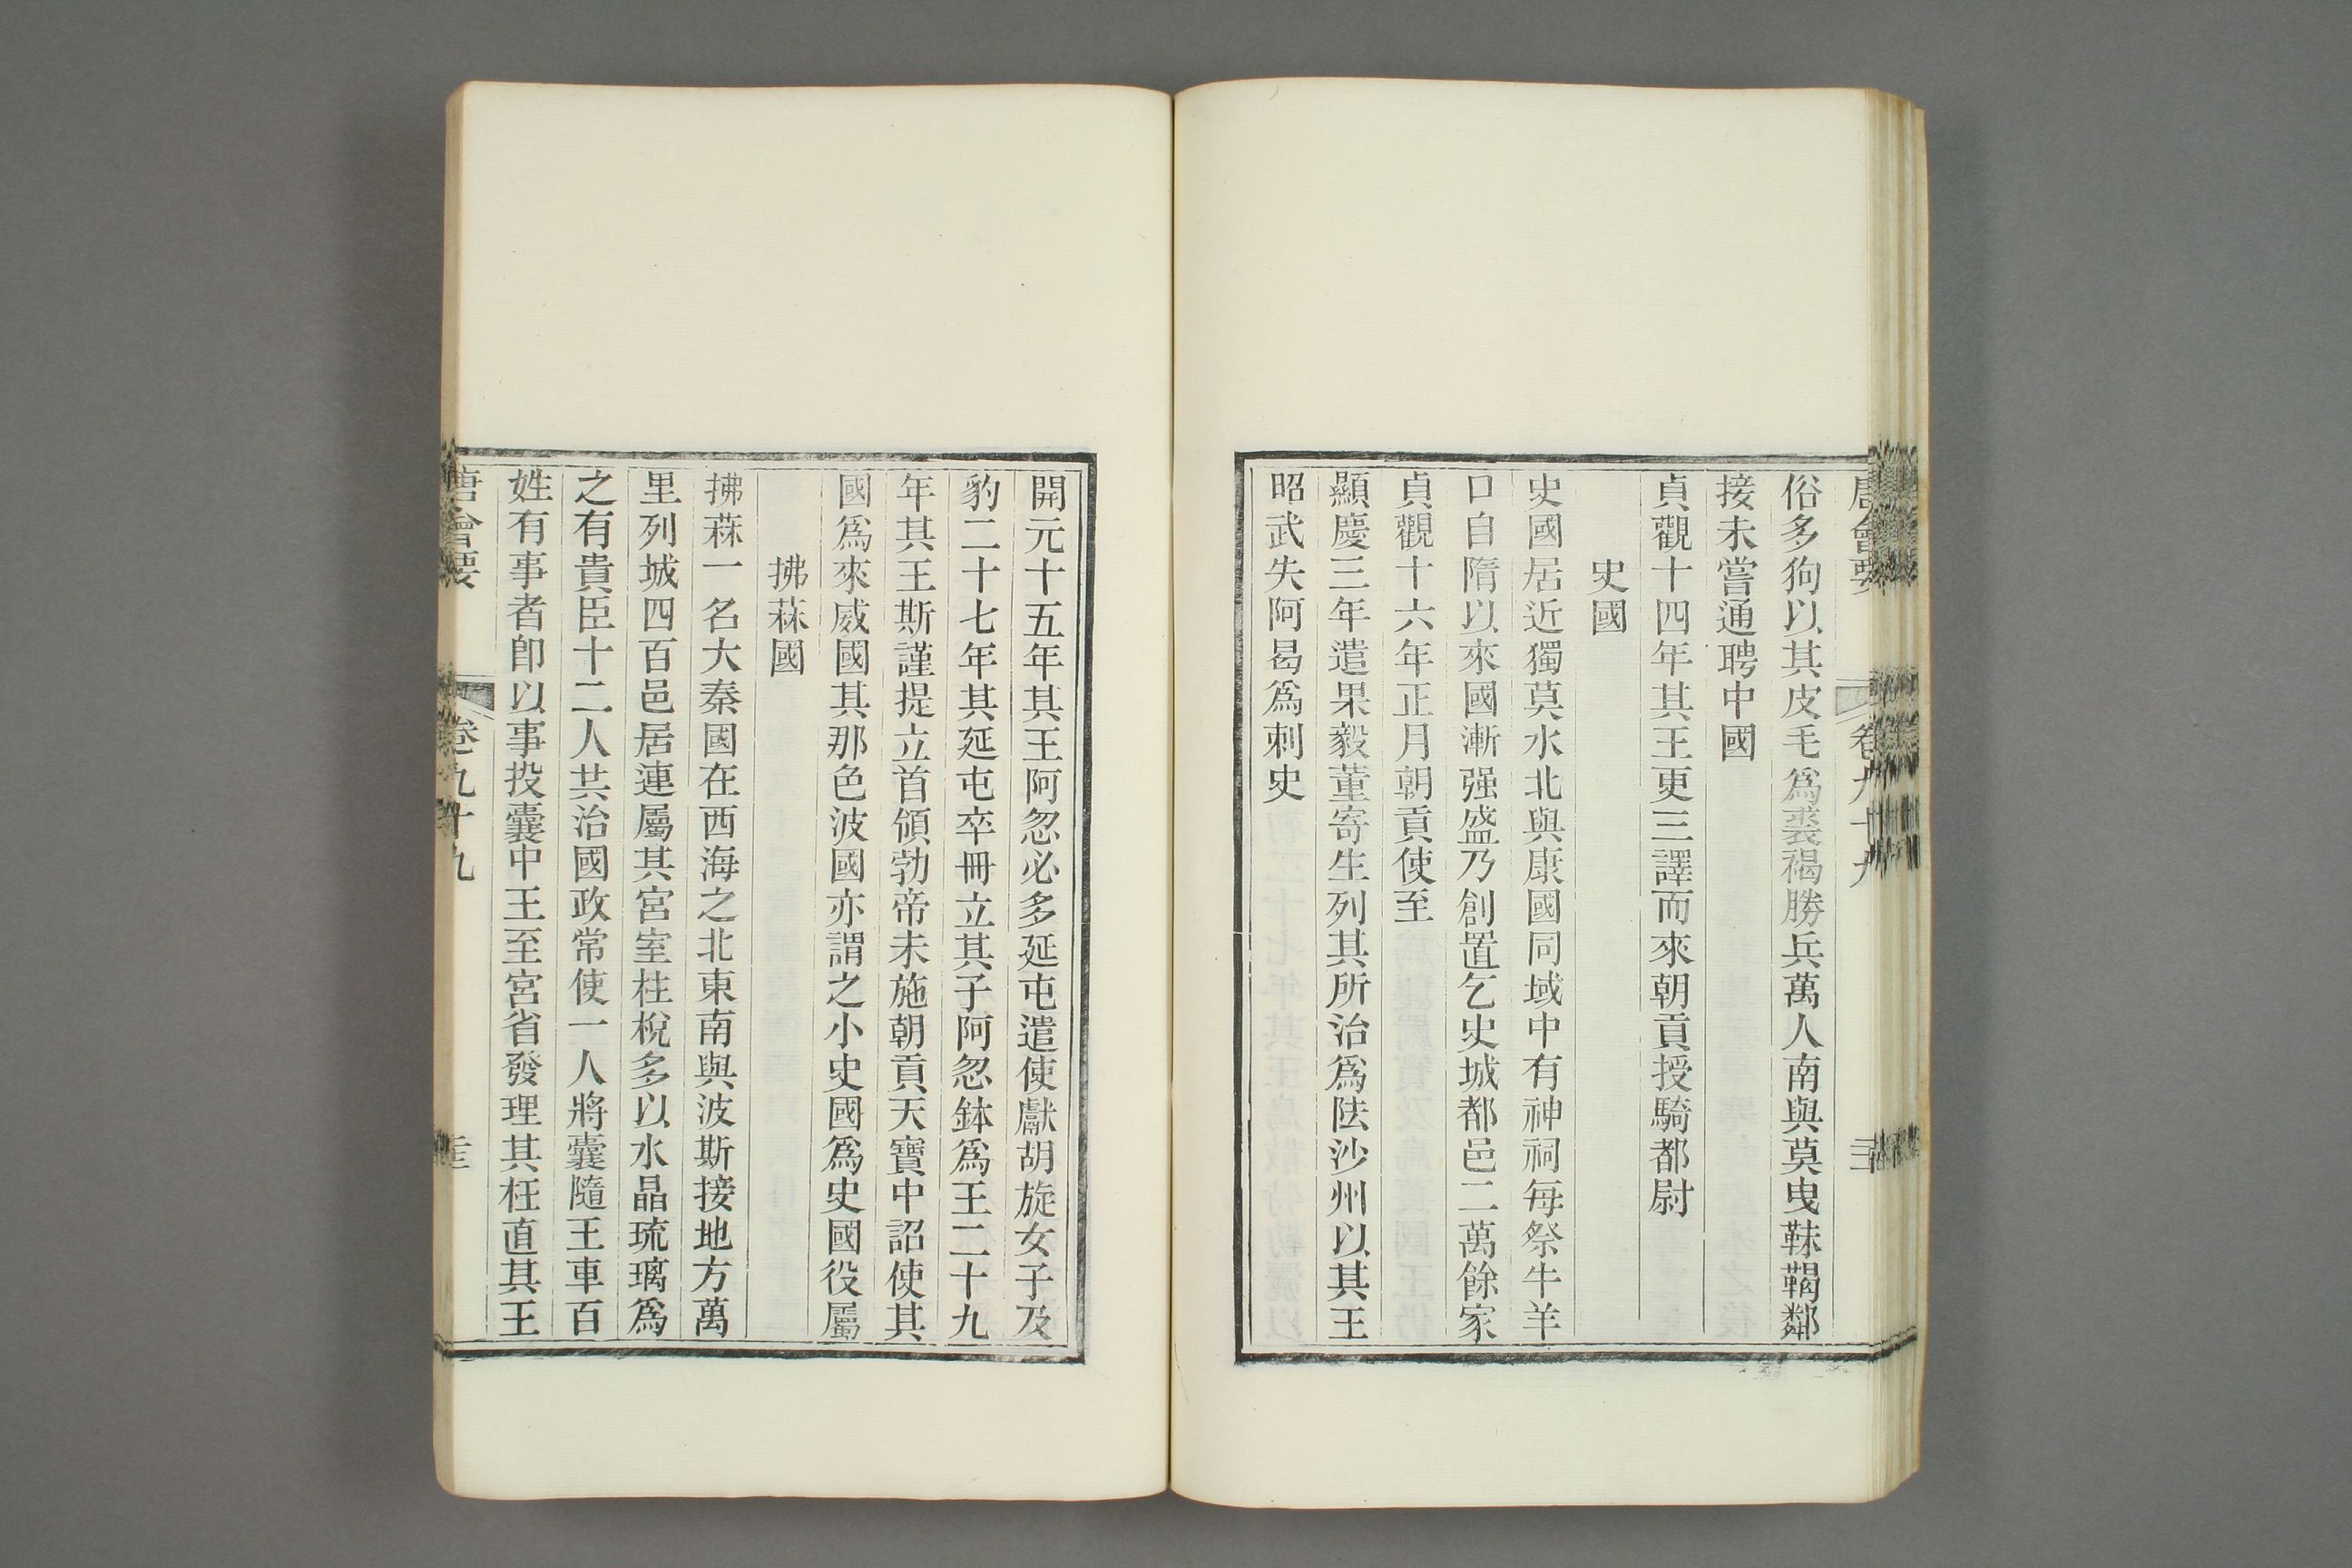 唐會要 卷九十九
俗多狗以其皮毛爲裘褐勝兵萬人南與莫曳靺鞨鄰
接未嘗通聘中國
貞觀十四年其王更三譯而來朝貢授騎都尉
史國
史國居近獨莫水北與康國同域中有神祠每祭牛羊
口自隋以來國漸强盛乃創置乞史城都邑二萬餘家
貞觀十六年正月朝貢使至
顯慶三年遣果毅董寄生列其所治爲佉沙州以其王
昭武失阿曷爲刺史
開元十五年其王阿忽必多延屯遣使獻胡旋女子及
豹二十七年其延屯卒冊立其子阿忽鉢爲王二十九
年其王斯謹提立首領勃帝未施朝貢天寶中詔使其
國爲來威國其那色波國亦謂之小史國爲史國役屬
拂菻國
拂菻一名大秦國在西海之北東南與波斯接地方萬
里列城四百邑居連屬其宮室柱棁多以水晶琉璃爲
之有貴臣十二人共治國政常使一人將囊隨王車百
姓有事者卽以事投囊中王至宮省發理其枉直其王
唐會要 卷九十九